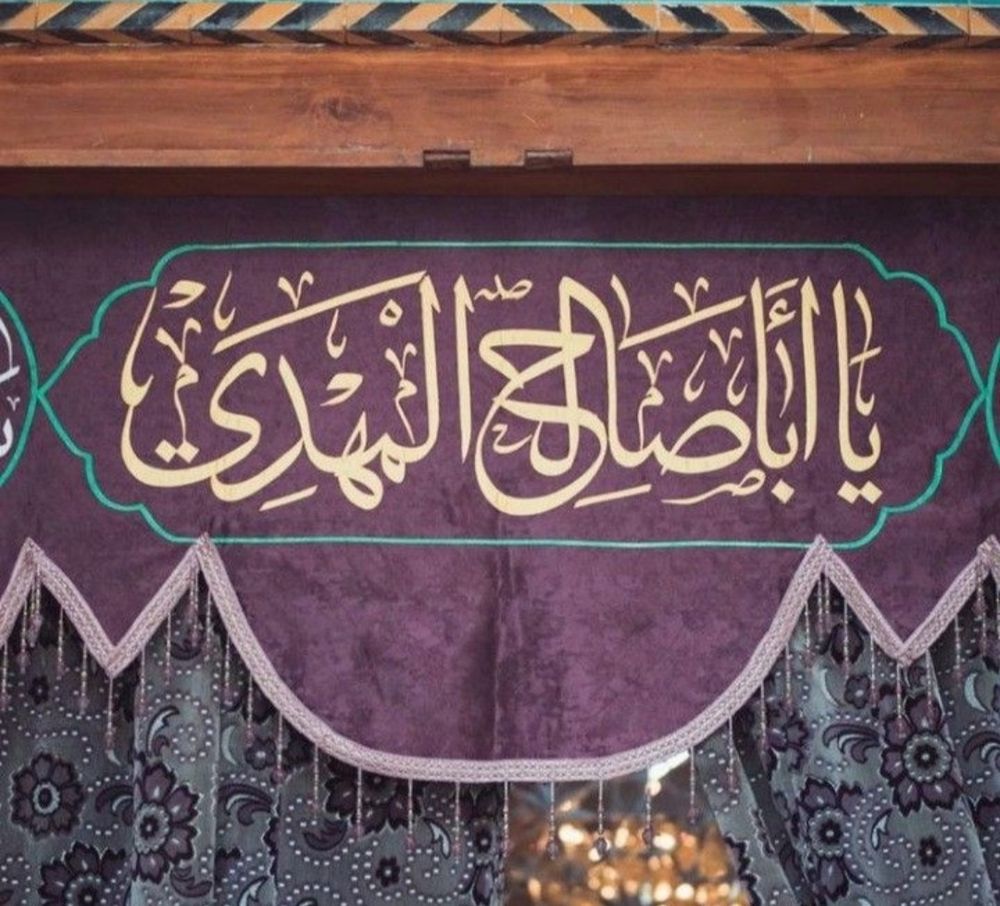 يا أَبا صَالِحَ الْمَهْدِيّ